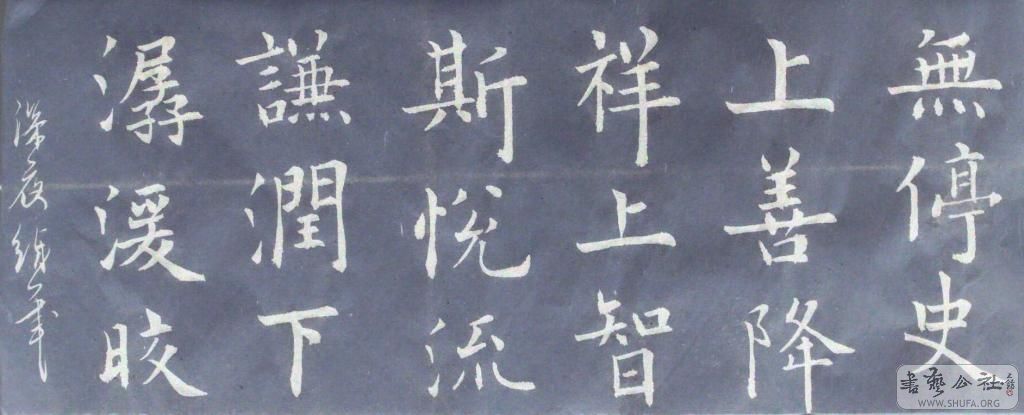 無停史
上善降
祥上智
斯悦流
謙潤下
潺湲皎
深夜
書藝公社
WWW.SHUFA.ORG